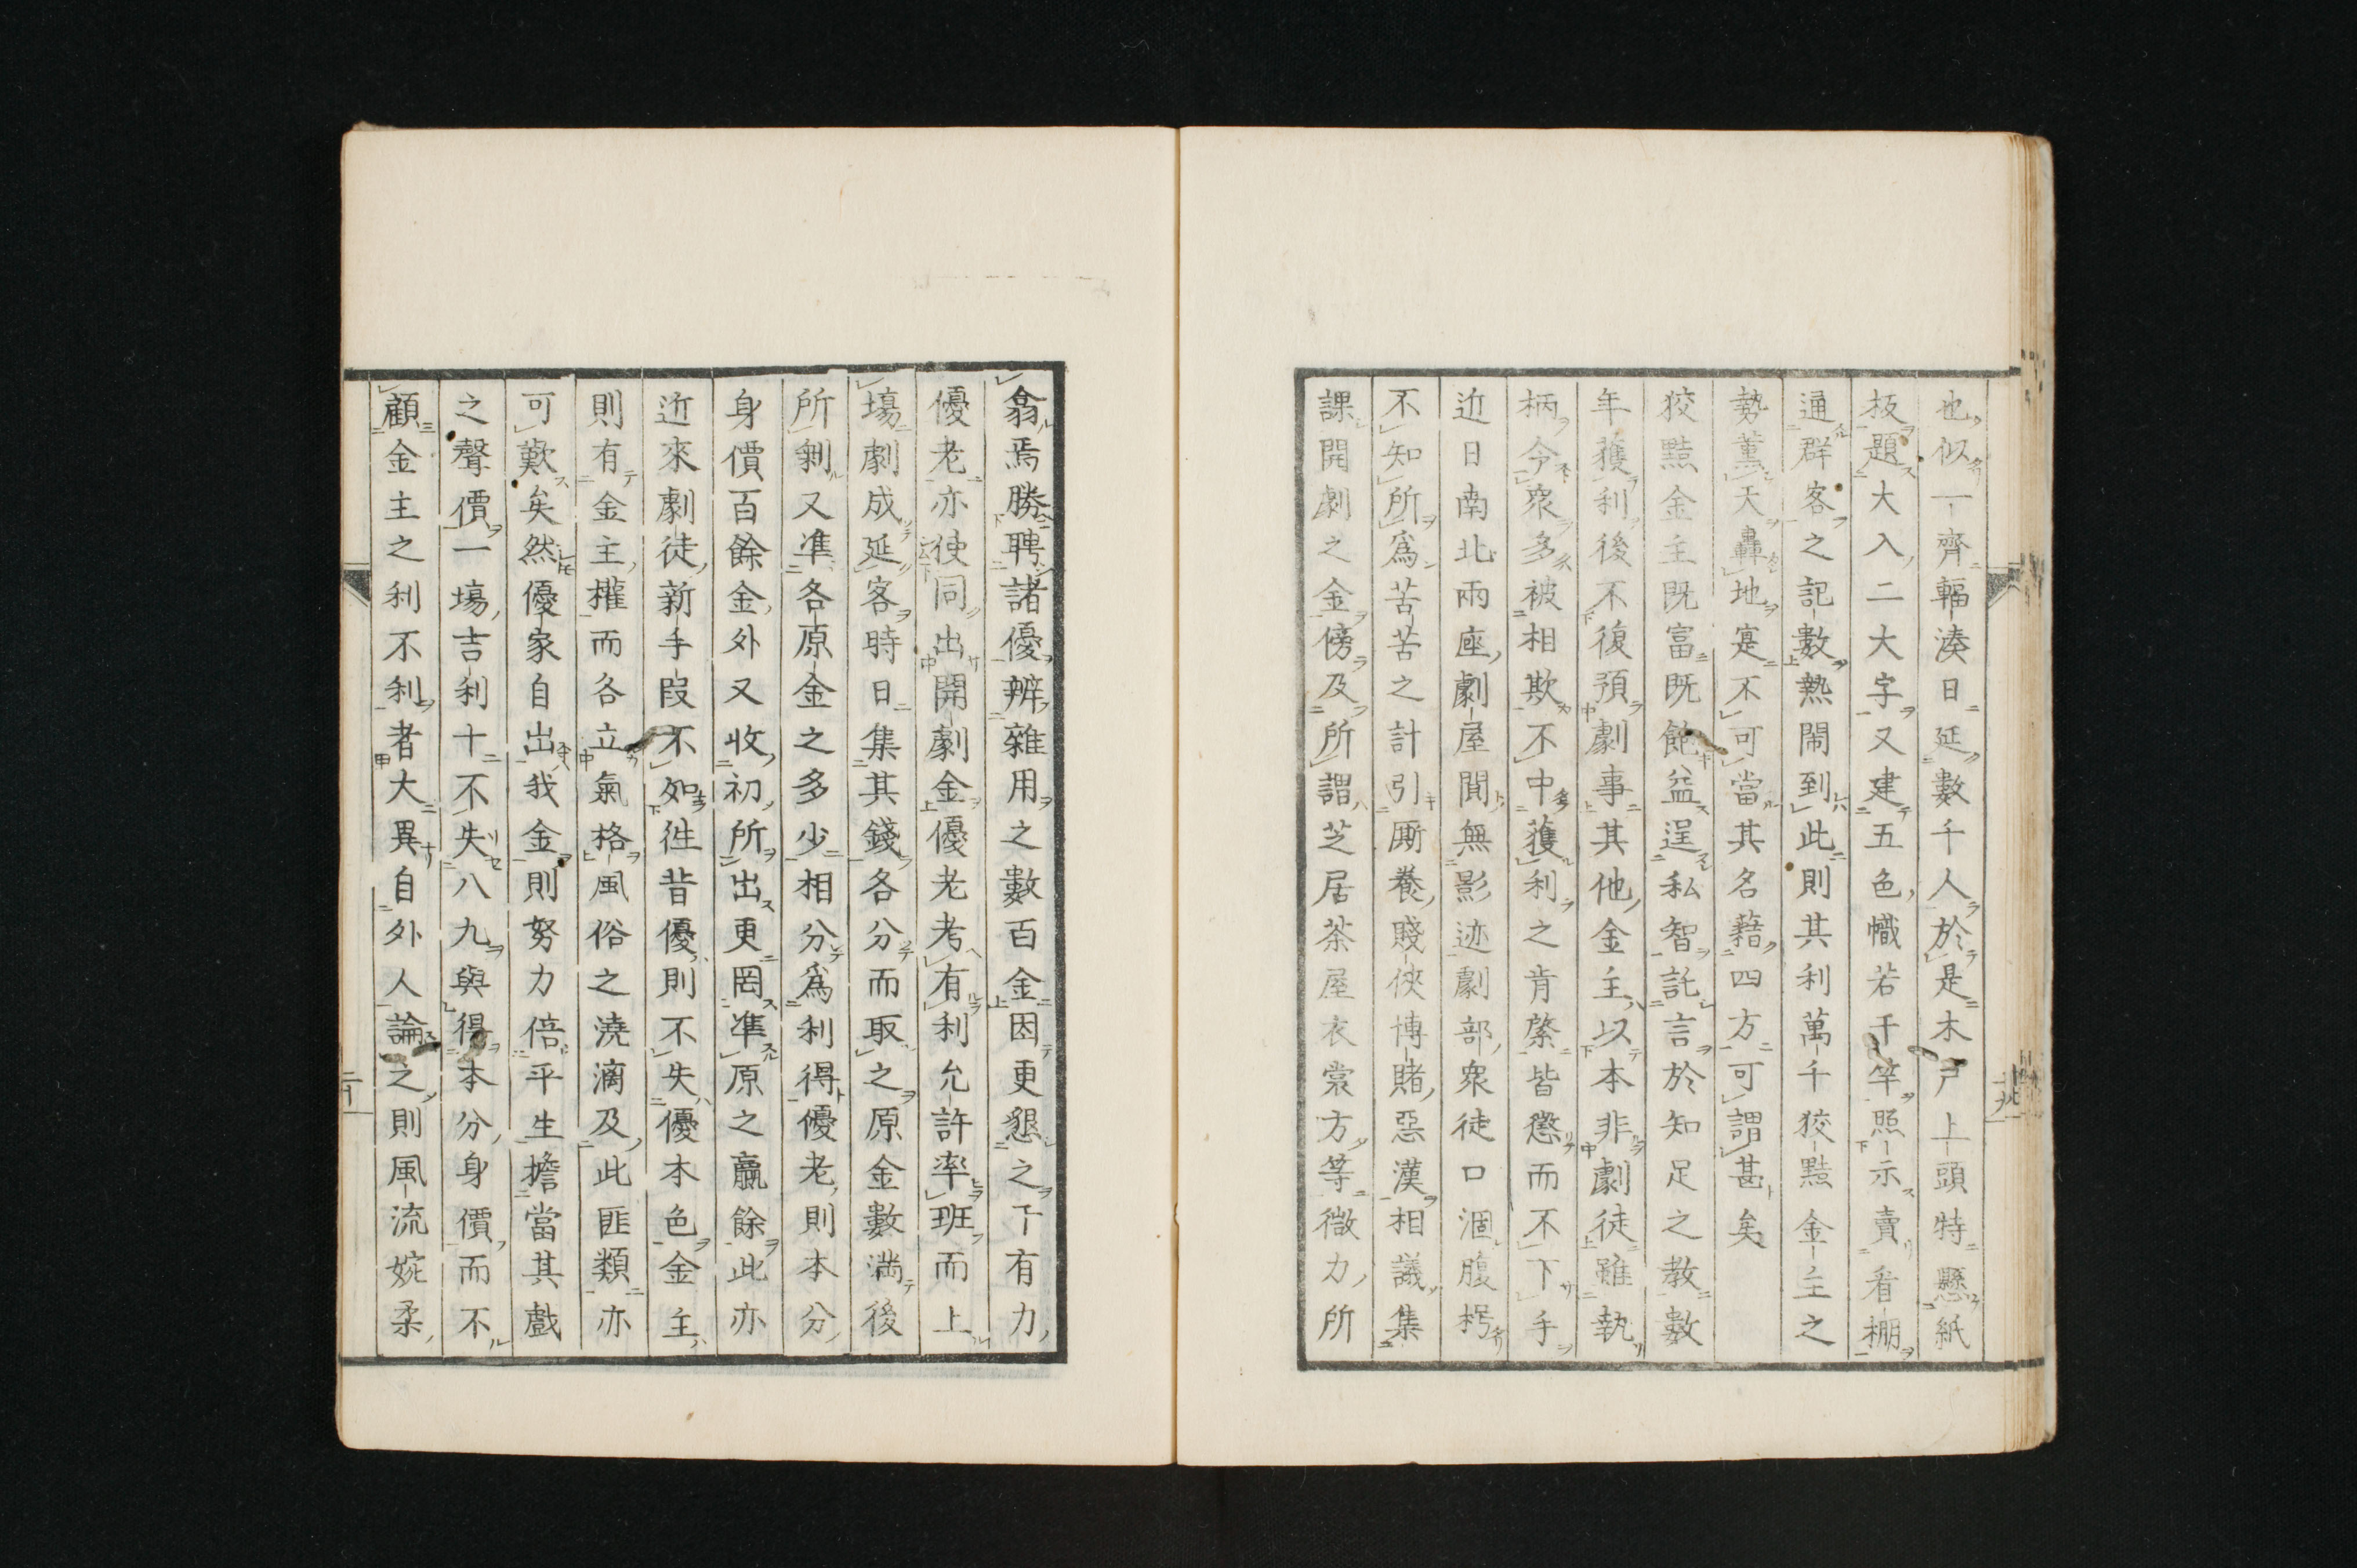 也似一齊輻湊日延數千人於是木戸上頭特懸紙
板題大入二大字又建五色幟若干竿照示賣看棚
通群客之記數熱鬧到此則其利萬千狡黠金主之
勢薰天轟地寔不可當其名藉四方可謂甚矣
狡黠金主既富既飽益逞私智託言於知足之教數
年獲利後不復預劇事其他金主以本非劇徒雖執
柄今衆多被相欺不中獲利之肯綮皆懲而不下手
近日南北兩座劇屋聞無影迹劇部衆徒口涸腹枵
不知所爲苦苦之計引厮養賤俠博賭惡漢相議集
課開劇之金傍及所謂芝居茶屋衣裳方等微力所
翕焉勝聘諸優辨雜用之數百金因更懇之丁有力
優老亦使同出開劇金優老考有利允許率班而上
塲劇成延客時日集其錢各分而取之原金數満後
所剩又準各原金之多少相分爲利得優老則本分
身價百餘金外又收初所出更罔準原之贏餘此亦
近來劇徒新手段不如徃昔優則不失優本色金主
則有金主權而各立氣格風俗之澆漓及此匪類亦
可歎矣然優家自出我金則努力倍平生擔當其戲
之聲價一塲吉利十不失八九與得本分身價而不
顧金主之利不利者大異自外人論之則風流婉柔